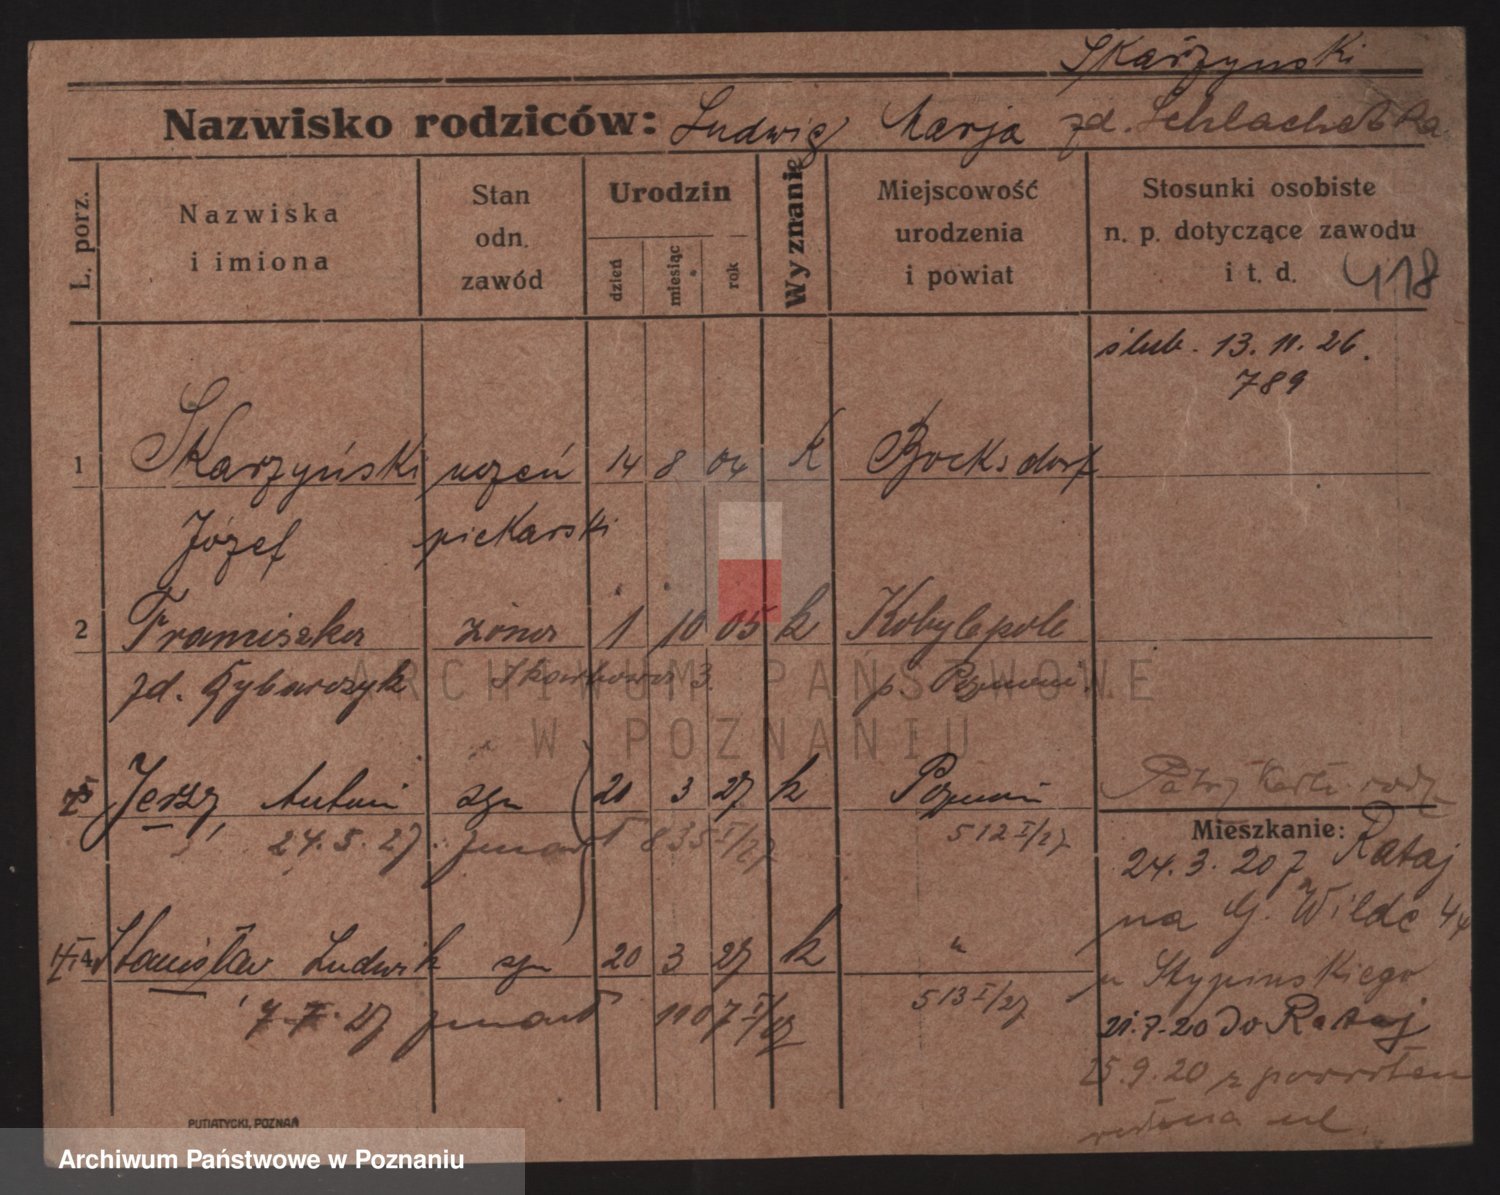 Skarżynski
Nazwisko rodziców: Ludwig Marja zd. Schlachetka
L. porz.
Nazwiska
i imiona
Stan
odn.
zawód
Urodzin
dzień
miesiąc
rok
Wyznanię
Miejscowość
urodzenia
i powiat
Stosunki osobiste
n. p. dotyczące zawodu
i t. d.
418
ślub. 13. 11. 26.
789
1 Skarzyński uczeń 14 8 04 k Bocksdorf
Józef piekarski
2 Franciszka żona 1 10 05 k Kobylepole
zd. Rybarczyk Skarbowa 3. p. Poznań.
Jerzy Antoni syn 20 3 27 k Poznań
24. 5. 27. zmarł 835 I/27 512 I/27
4 Stanisław Ludwik syn 20 3 27 k "
7. 7. 27 zmarł 1107 I/27 513 I/27
Patrz Kartę rodz
Mieszkanie:
24. 3. 20 z Rataj
na G. Wilde 44
u Stypinskiego
21. 7. 20 do Rataj
25. 9. 20 z powrotem
ul.
PUTIATYCKI, POZNAŃ
ARCHIWUM PAŃSTWOWE
W POZNANIU
Archiwum Państwowe w Poznaniu